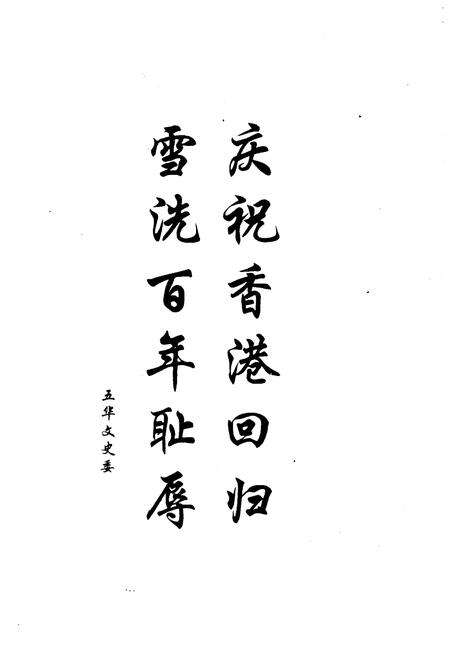 庆祝香港回归
雪洗百年耻辱
五华文史委